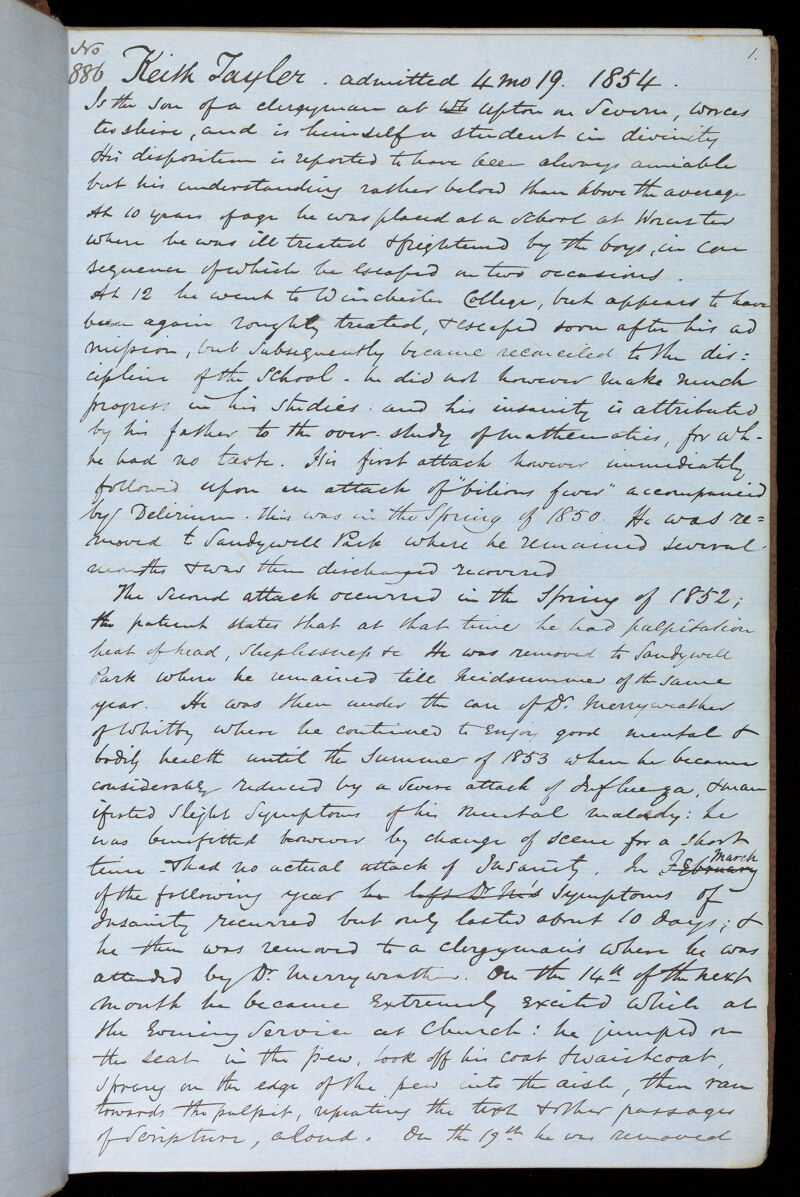 No 1.
886 Keith Tayler. admitted 4 mo 19. 1854.
Is the son of a clergyman at Upton on Severn, Worces
tershire, and is himself a student in divinity
His disposition is reported to have been always amiable
but his understanding rather below than above the average
At 10 years of age he was placed at a School at Worcester
where he was ill treated & frightened by the boys, in con
sequence of which he escaped on two occasions.
At 12 he went to Winchester College, but appears to have
been again roughly treated, & escaped soon after his ad
mission, but subsequently became reconciled to the dis:
cipline of the School. he did not however make much
progress in his studies: and his insanity is attributed
by his father to the over-study of mathematics, for wh-
he had no taste. His first attack however immediately
followed upon an attack of "bilious fever" accompanied
by Delirium. this was in the Spring of 1850. He was re=
moved to Sandywell Park where he remained several
months & was then discharged recovered
The second attack occurred in the Spring of 1852;
the patient states that at that time he had palpitation
heat of head, sleeplessness &c He was removed to Sandywell
Park where he remained till Midsummer of the same
year. He was then under the care of Dr. Merryweather
of Whitby where he continued to enjoy good mental &
bodily health until the Summer of 1853 when he became
considerably reduced by a severe attack of Influenza, & man
ifested slight symptoms of his mental malady: he
was benefitted however by change of scene for a short
time - & had no actual attack of Insanity. In February March
of the following year he left Dr M's Symptoms of
Insanity recurred but only lasted about 10 days; &
he then was removed to a clergyman's where he was
attended by Dr. Merryweather. On the 14th of the next
month he became extremely excited while at
the Evening Service at Church: he jumped on
the seat in the pew, took off his coat & waistcoat,
sprang on the edge of the pew into the aisle, then ran
towards the pulpit, repeating the text & other passages
of Scripture, aloud. On the 19th he was removed